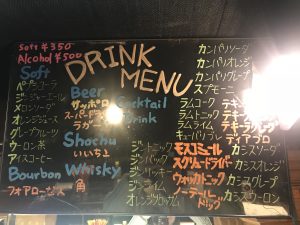 Soft ¥350
Alcohol ¥500
DRINK
MENU
Soft
ペプシコーラ
ジンジャーエール
メロンソーダ
オレンジジュース
グレープフルーツ
ウーロン茶
アイスコーヒー
Bourbon
フォアローゼズ
Beer
サッポロ
スーパードライ
ラガー
Shochu
いいちこ
Whisky
角
Cocktail
Drink
ジントニック
ジンバック
ジンライム
オレンジブロッサム
カンパリソーダ
カンパリオレンジ
カンパリグレープ
スプモーニ
ラムコーク
ラムトニック
ラムライム
キューバリブレ
モスコミュール
スクリュードライバー
ウォッカトニック
ソーラー
カシスソーダ
カシスオレンジ
カシスグレープ
カシスウーロン